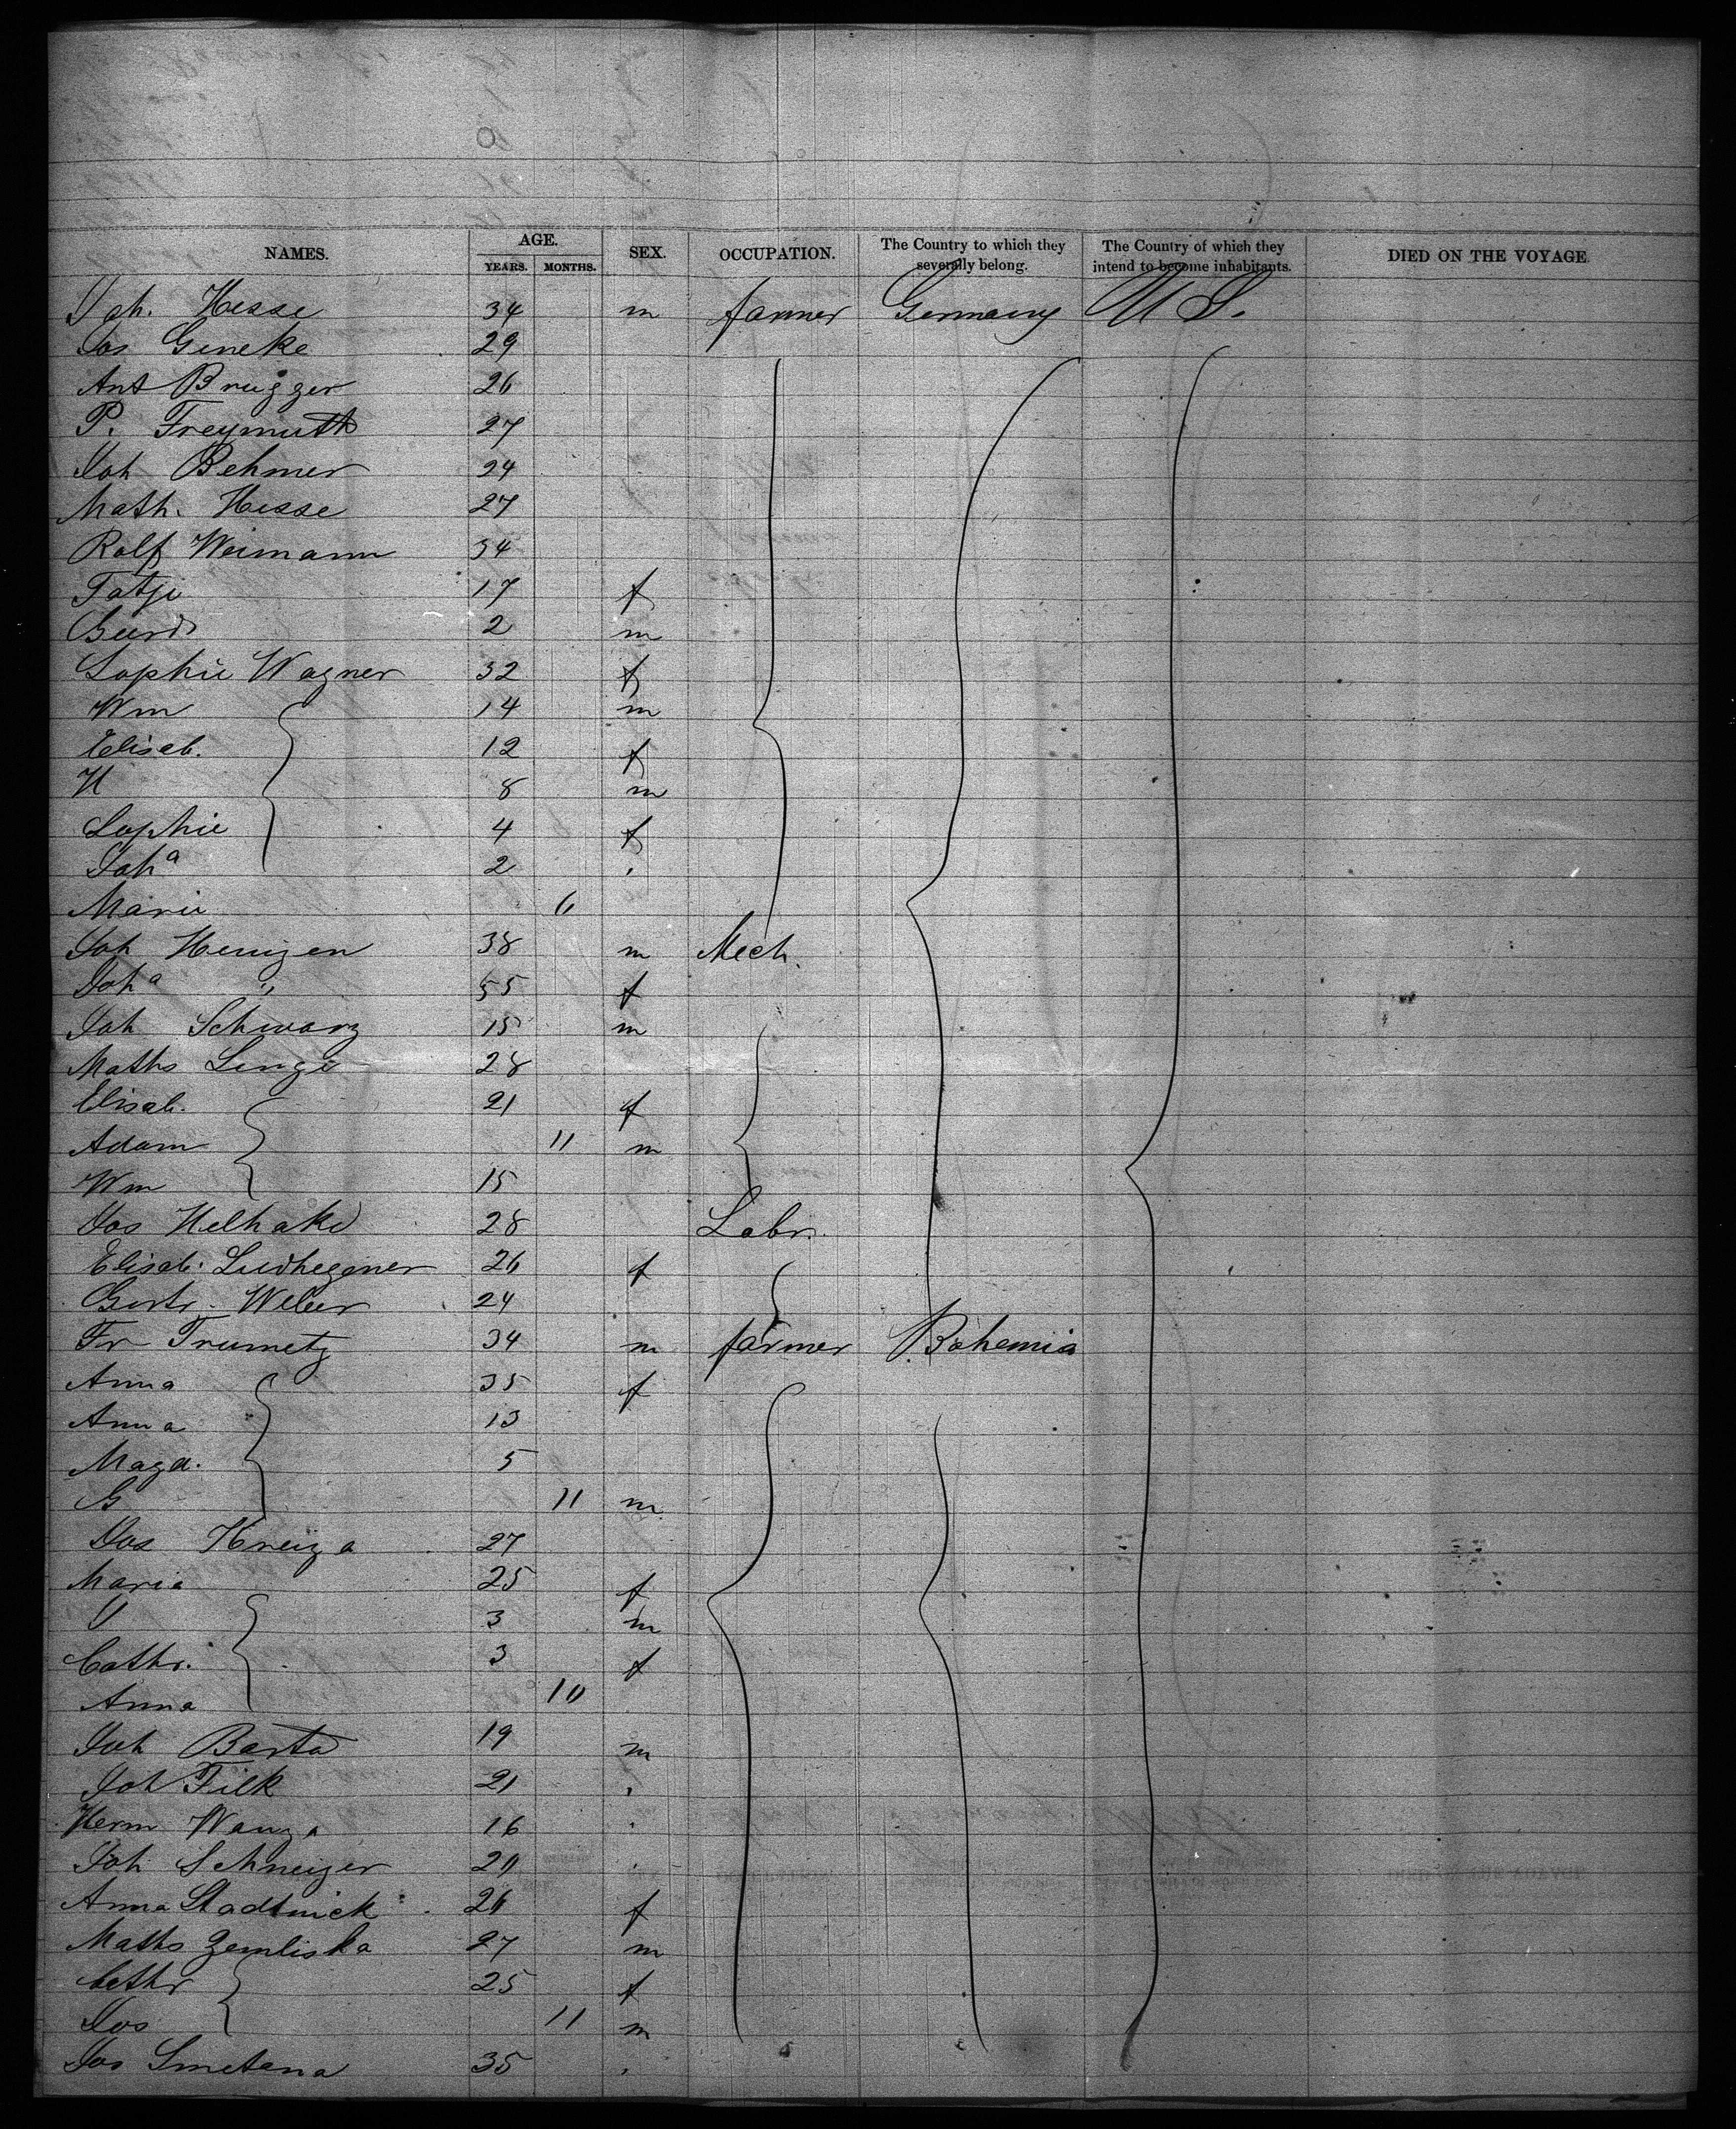 NAMES. AGE. YEARS. MONTHS. SEX. OCCUPATION. The Country to which they severally belong. The Country of which they intend to become inhabitants. DIED ON THE VOYAGE.
Joh. Hesse 34 m farmer Germany U S.
Jos Gineke 29
Ant Brugger 26
P. Freymuth 27
Joh Behmer 24
Math. Hesse 27
Rolf Weimann 34
Tatje 17 f
Geerd 2 m
Sophie Wagner 32 f
Wm 14 m
Elisab. 12 f
H 8 m
Sophie 4 f
Joha 2 "
Marie 6
Joh Heuizen 38 m Mech.
Joha " 55 f
Joh Schwarz 15 m
Maths Linge 28
Elisab. 21 f
Adam 11 m
Wm 15
Jos Helhake 28 Labr.
Elisab. 26 f
Gertr. Weber 24
Fr Trumetz 34 m farmer Bohemia
Anna 35 f
Anna 13
Magd. 5
G 11 m
Jos Kreiza 27
Maria 25 f
J 3 m
Cathr. 3 f
Anna 10
Joh Barta 19 m
Joh Filk 21 "
Herm Wanza 16 "
Joh Schneizer 20 "
Anna Stadtnick 26 f
Maths Zemliska 27 m
Cathr 25 f
Jos 11 m
Jos Smetana 35 "